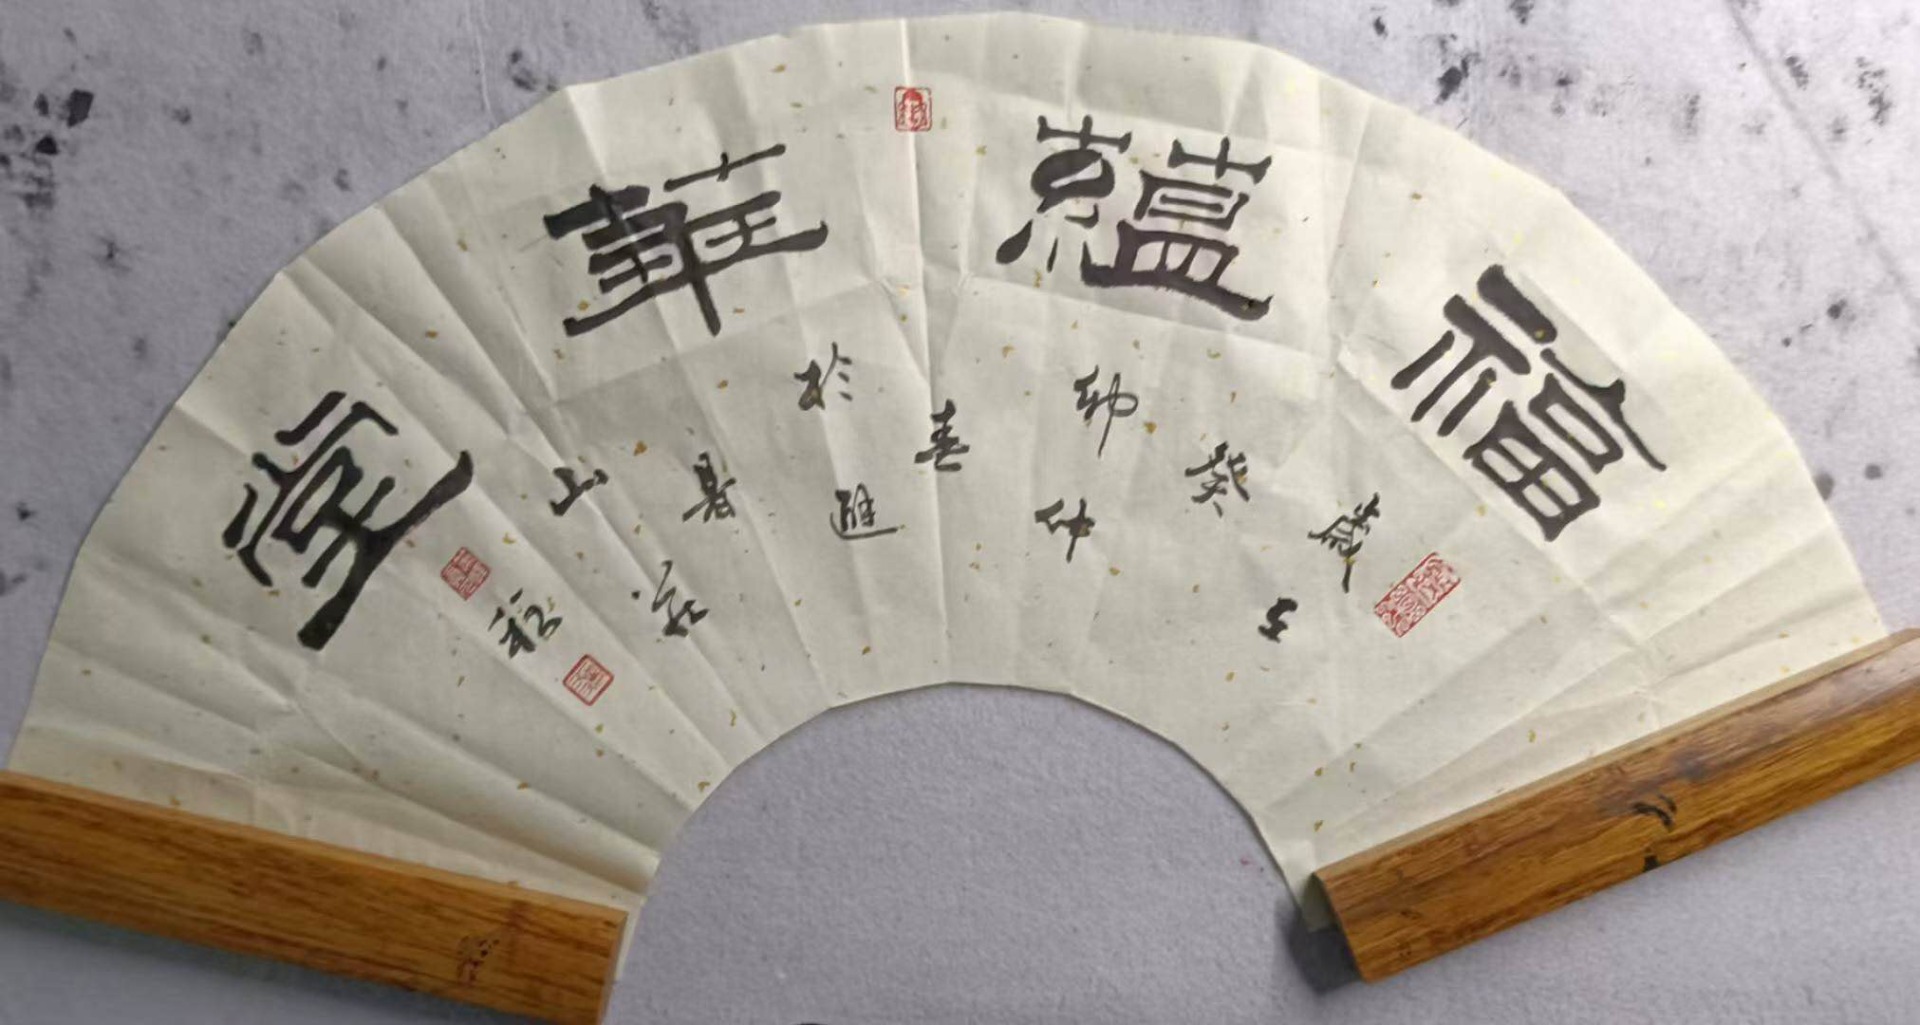 福蘊華堂
歲在癸卯仲春於避暑山莊